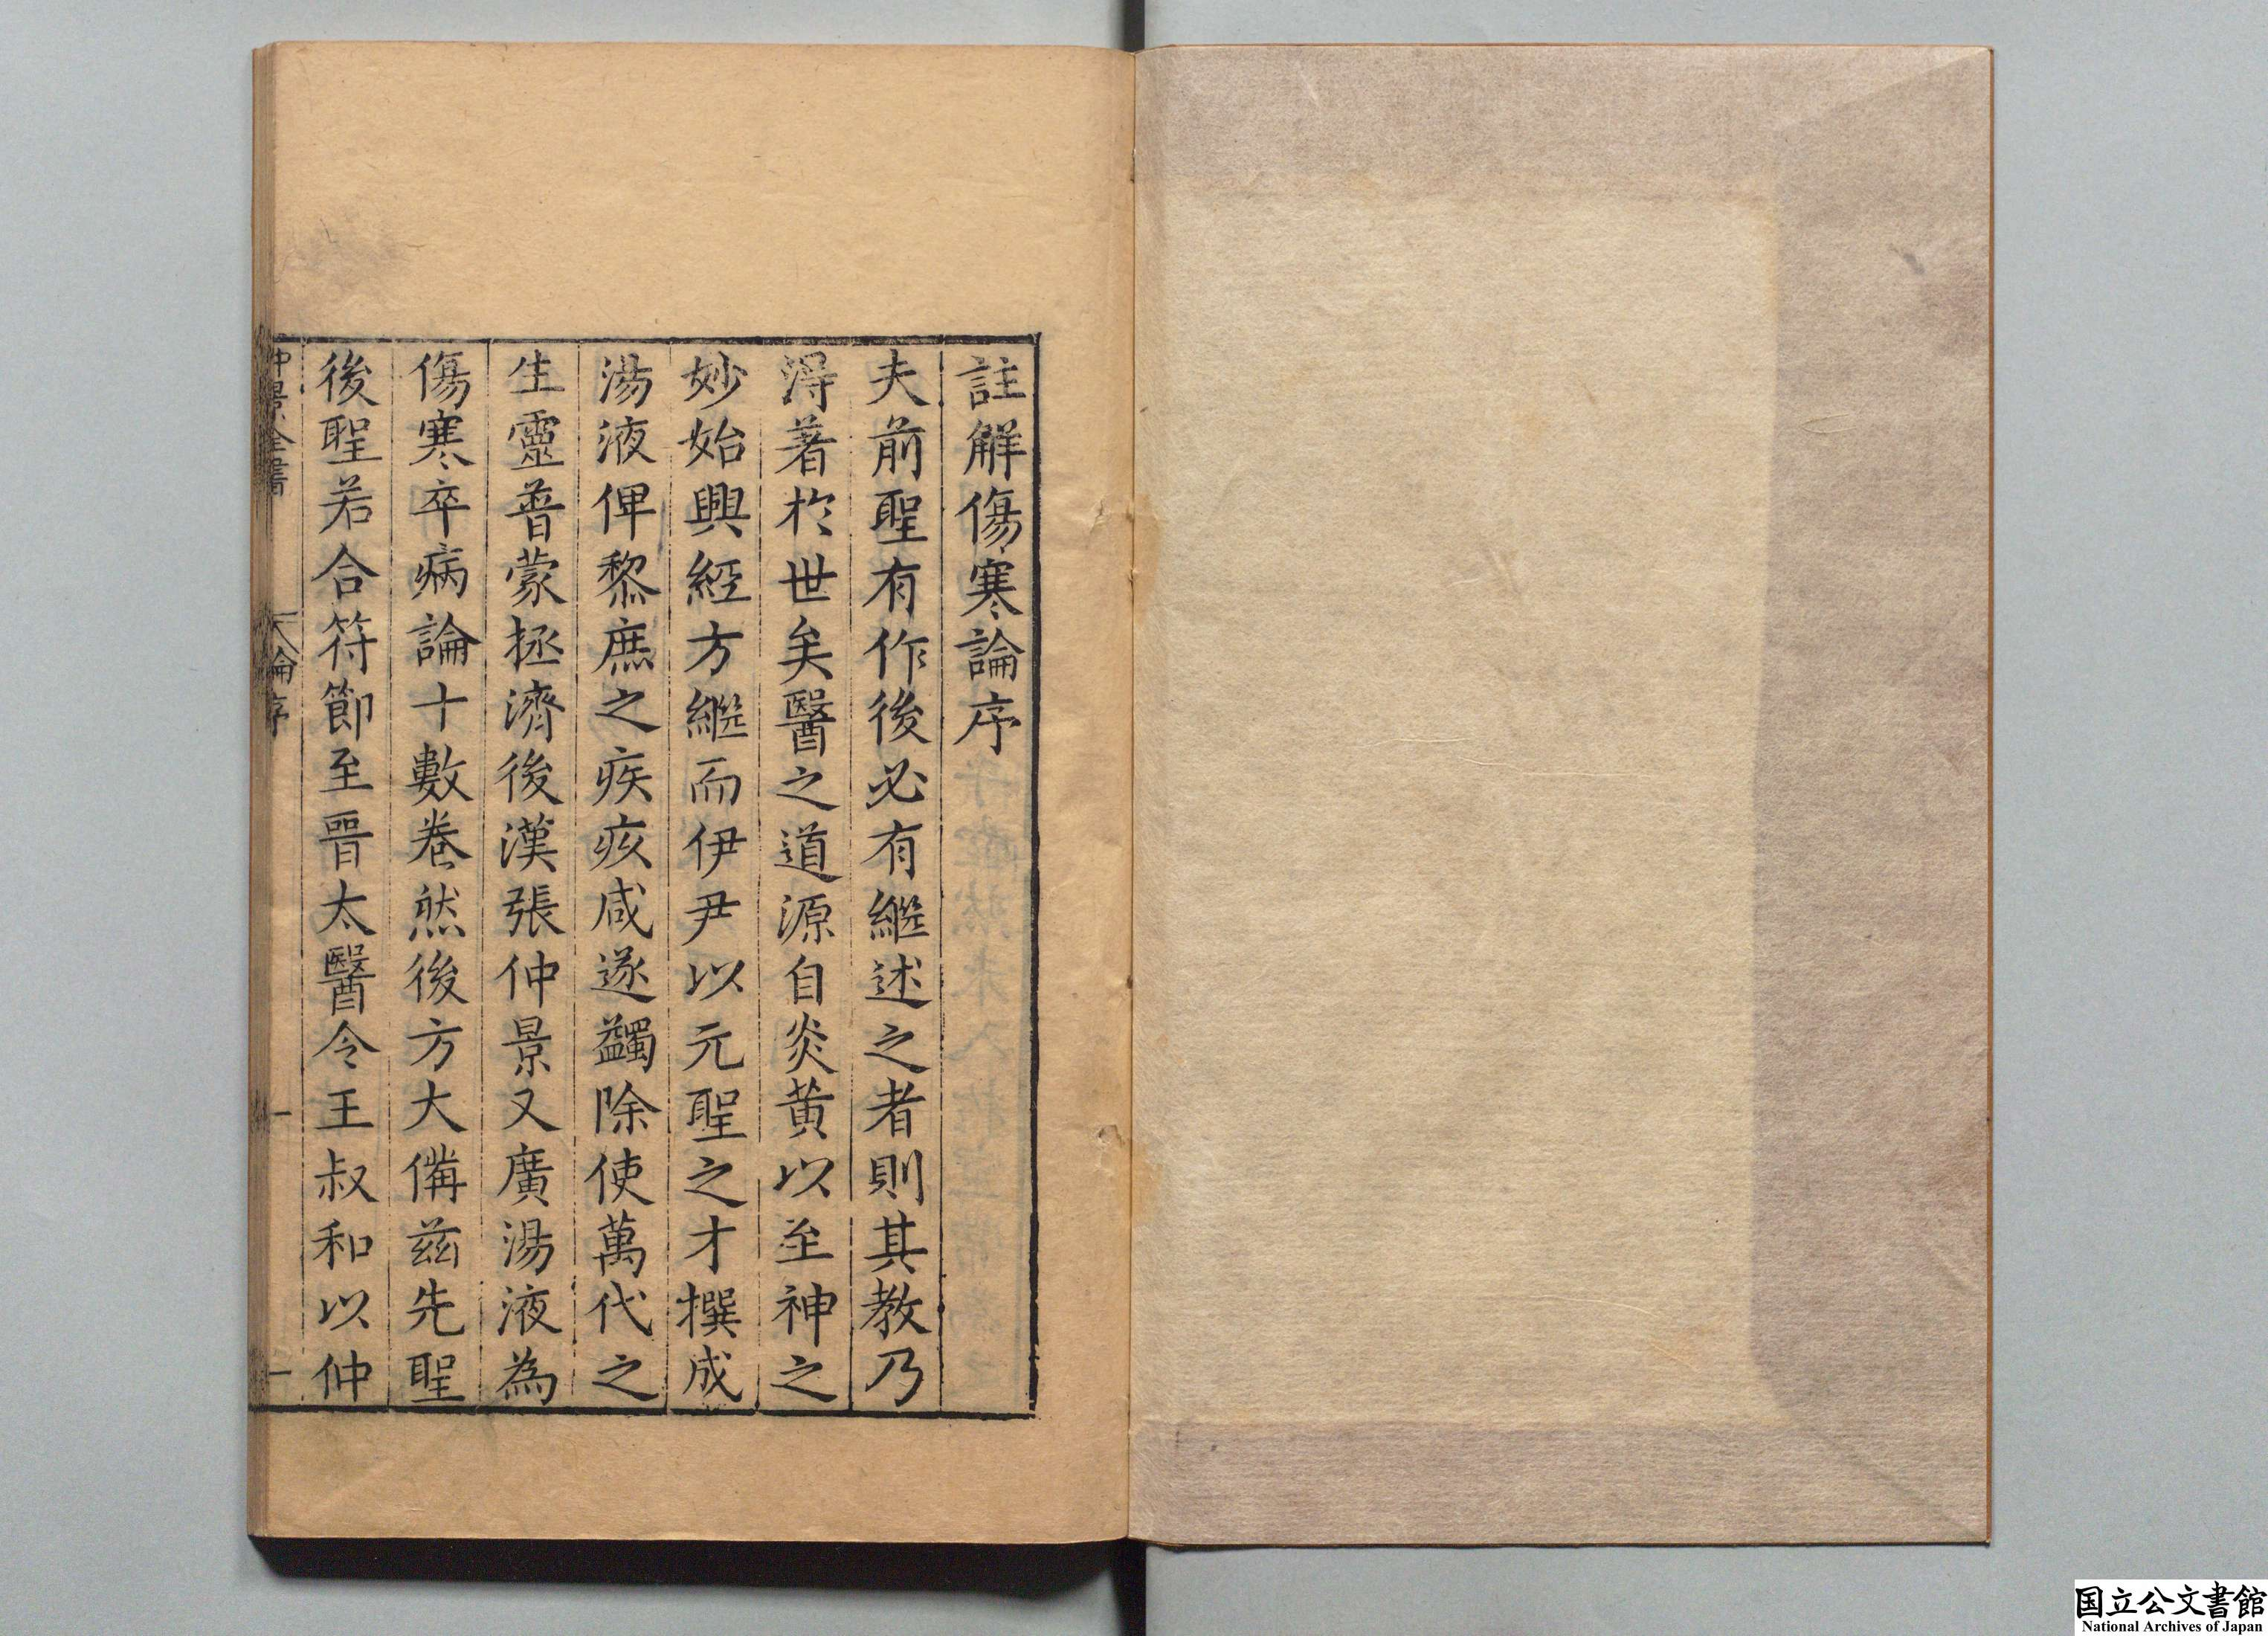 註解傷寒論序
夫前聖有作後必有繼述之者則其教乃
淂著於世矣醫之道源自炎黄以至神之
妙始興經方繼而伊尹以元聖之才撰成
湯液俾黎庶之疾疢咸遂蠲除使萬代之
生靈普蒙拯濟後漢張仲景又廣湯液為
傷寒卒病論十數卷然後方大備兹先聖
後聖若合符節至晉太醫令王叔和以仲
仲景全書
論序
一
国立公文書館
National Archives of Japan